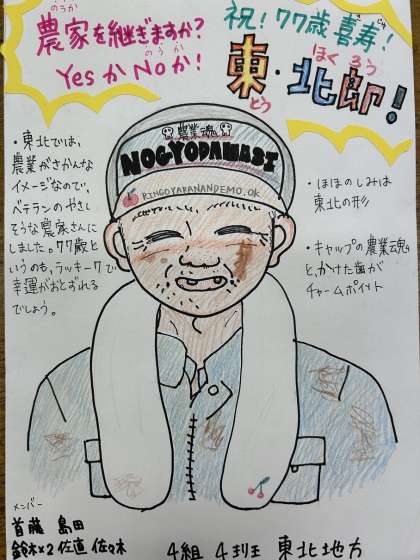 のうか
農家を継ぎますか?
のうか
YesかNoか!
祝!77歳喜寿!
きじゅ
東・北郎!
とう
ほくろう
・東北では、
農業がさかんな
イメージなので、
ベテランのやさし
そうな農家さんに
しました。77歳と
いうのも、ラッキー7で
幸運がおとずれる
でしょう。
農業魂
NOGYODAMASI
RINGOYARANANDEMO.OK
・ほほのしみは
東北の形
・キャップの農業魂
と、かけた歯が
チャームポイント
メンバー
首藤 島田
鈴木×2 佐直 佐々木
4組 4班 東北地方